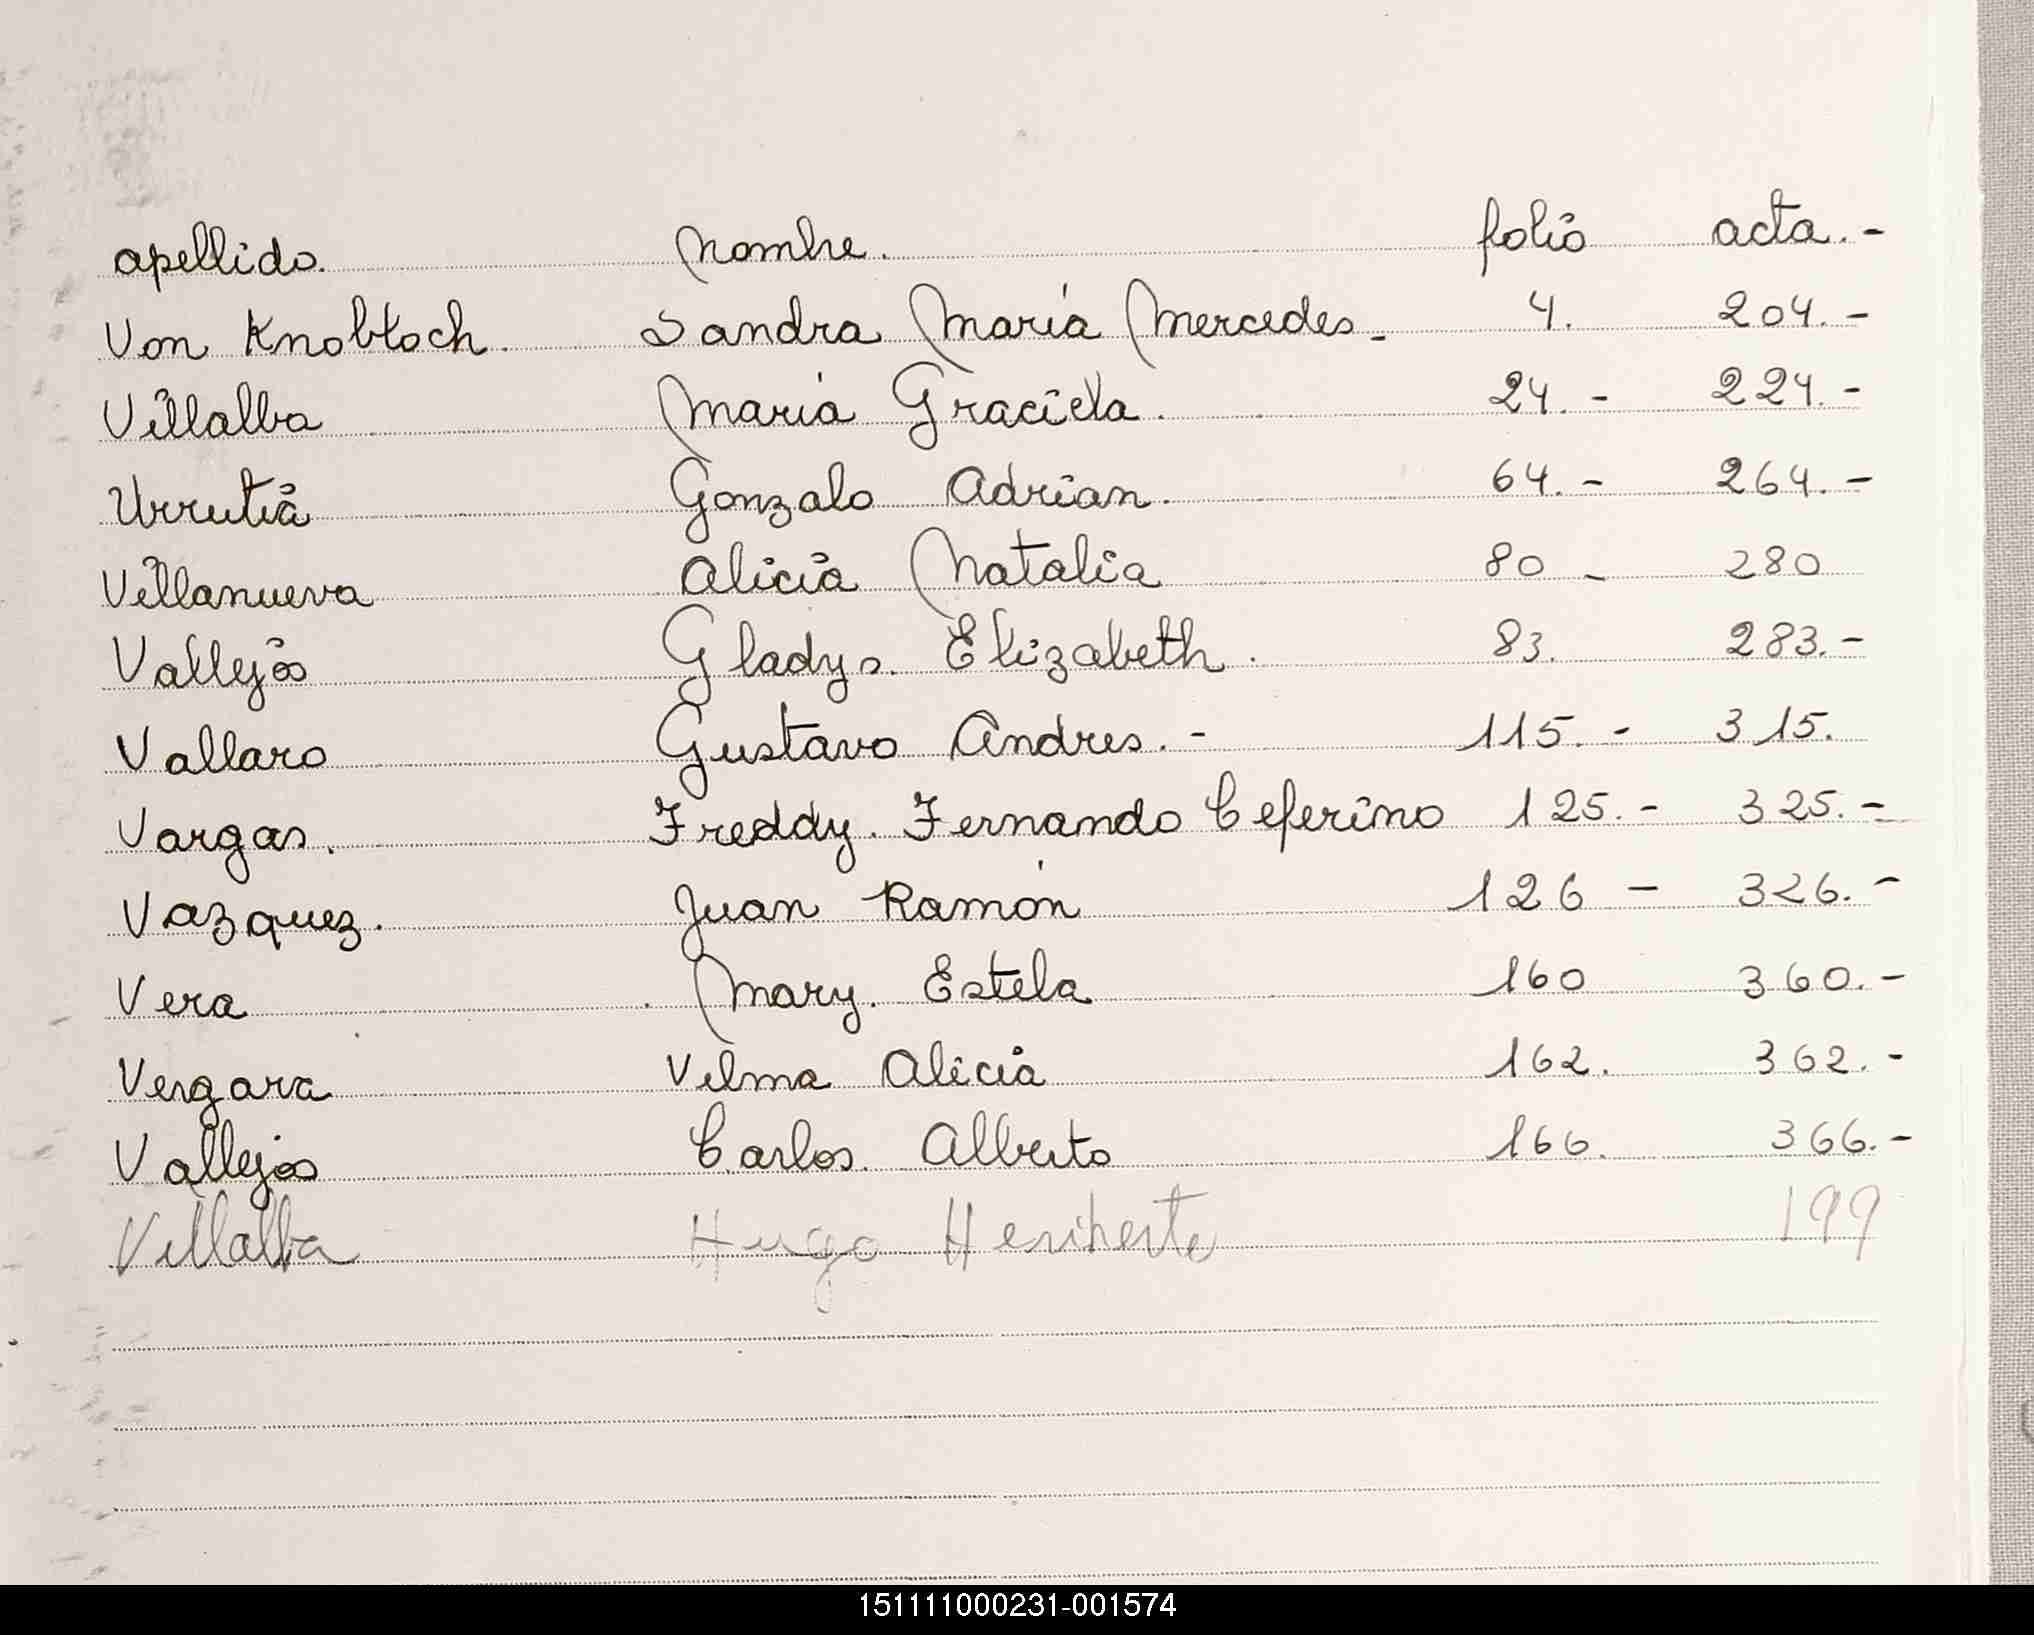 apellido. nombre. folio acta.-
Von Knobloch. Sandra María Mercedes.- 4. 204.-
Villalba María Graciela. 24.- 224.-
Urrutia Gonzalo Adrian. 64.- 264.-
Villanueva Alicia Natalia 80- 280
Vallejos Gladys. Elizabeth. 83. 283.-
Vallaro Gustavo Andres.- 115.- 315.
Vargas. Freddy. Fernando Ceferino 125.- 325.-
Vazquez. Juan Ramón 126- 326.-
Vera Mary. Estela 160 360.-
Vergara Vilma Alicia 162. 362.-
Vallejos Carlos. Alberto 166. 366.-
Villalba Hugo Heriberto 199
151111000231-001574